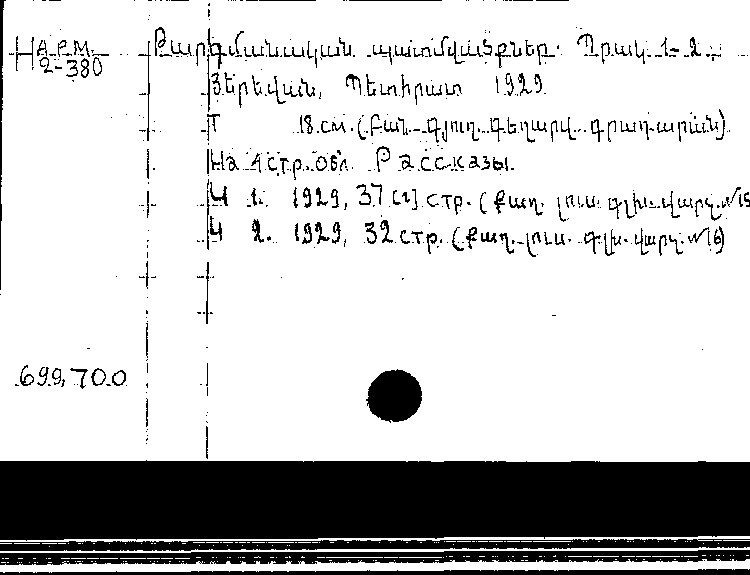 Н АРМ. 2-380
Թարգմանական պատմվածքներ. Պրակ 1-2.
Յերեվան, Պետհրատ 1929
Т 18 см. (Բան.-գյուղ. գեղարվ. գրադարան)
На 4 стр. обл. Рассказы.
Ч 1. 1929, 37 [2] стр. (քաղ. լուս. գլխ. վարչ. №15
Ч 2. 1929, 32 стр. (քաղ. լուս. գլխ. վարչ. №16)
699,700